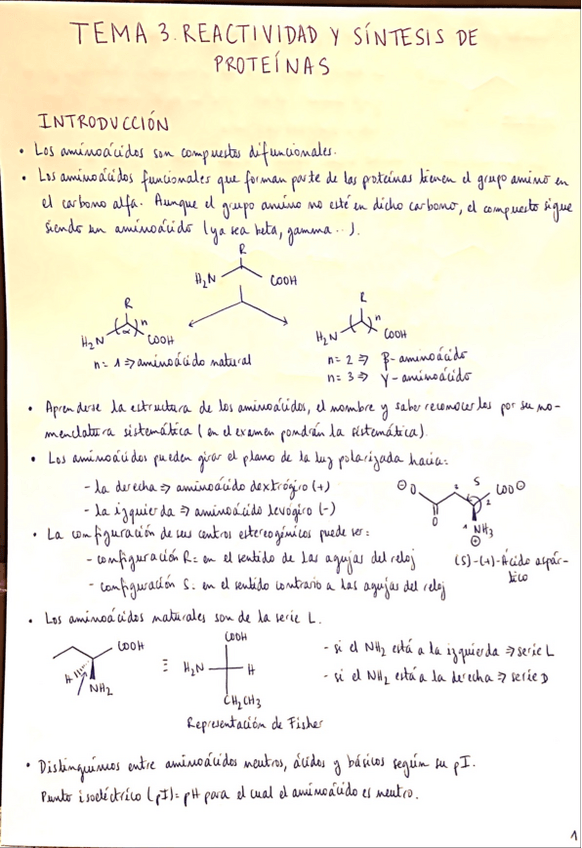 TEMA 3. REACTIVIDAD Y SÍNTESIS DE
PROTEÍNAS
INTRODUCCIÓN
• Los aminoácidos son compuestos difuncionales.
• Los aminoácidos funcionales que forman parte de las proteínas tienen el grupo amino en
el carbono alfa. Aunque el grupo amino no esté en dicho carbono, el compuesto sigue
siendo un aminoácido (ya sea beta, gamma...).
R
H₂N COOH
R
H₂N (α)n COOH
n = 1 ⇒ aminoácido natural
R
H₂N ( )n COOH
n = 2 ⇒ β-aminoácido
n = 3 ⇒ γ-aminoácido
• Aprenderse la estructura de los aminoácidos, el nombre y saber reconocerlos por su no-
menclatura sistemática (en el examen pondrán la sistemática).
• Los aminoácidos pueden girar el plano de la luz polarizada hacia:
- la derecha ⇒ aminoácido dextrógiro (+)
- la izquierda ⇒ aminoácido levógiro (-)
⊖O O 2 S COO⊖
1 NH₃
⊕
(S)-(+)-Ácido aspár-
tico
• La configuración de sus centros estereogénicos puede ser:
- configuración R: en el sentido de las agujas del reloj
- configuración S: en el sentido contrario a las agujas del reloj
• Los aminoácidos naturales son de la serie L.
COOH
H NH₂
≡
COOH
H₂N H
CH₂CH₃
Representación de Fisher
- si el NH₂ está a la izquierda ⇒ serie L
- si el NH₂ está a la derecha ⇒ serie D
• Distinguimos entre aminoácidos neutros, ácidos y básicos según su pI.
Punto isoeléctrico (pI) = pH para el cual el aminoácido es neutro.
1